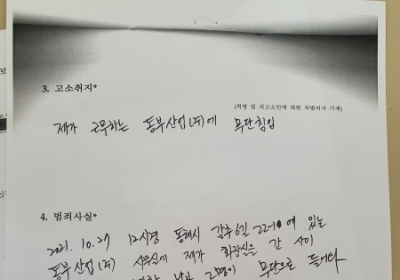 3. 고소취지*
(죄명 및 피고소인에 대한 처벌의사 기재)
제가 근무하는 동부산업(주)에 무단침입
4. 범죄사실*
2021. 10. 27 12시경 동해시 감추6길 22-10에 있는
동부산업(주) 사무실에 제가 화장실을 간 사이
2명이 무단으로 들어와